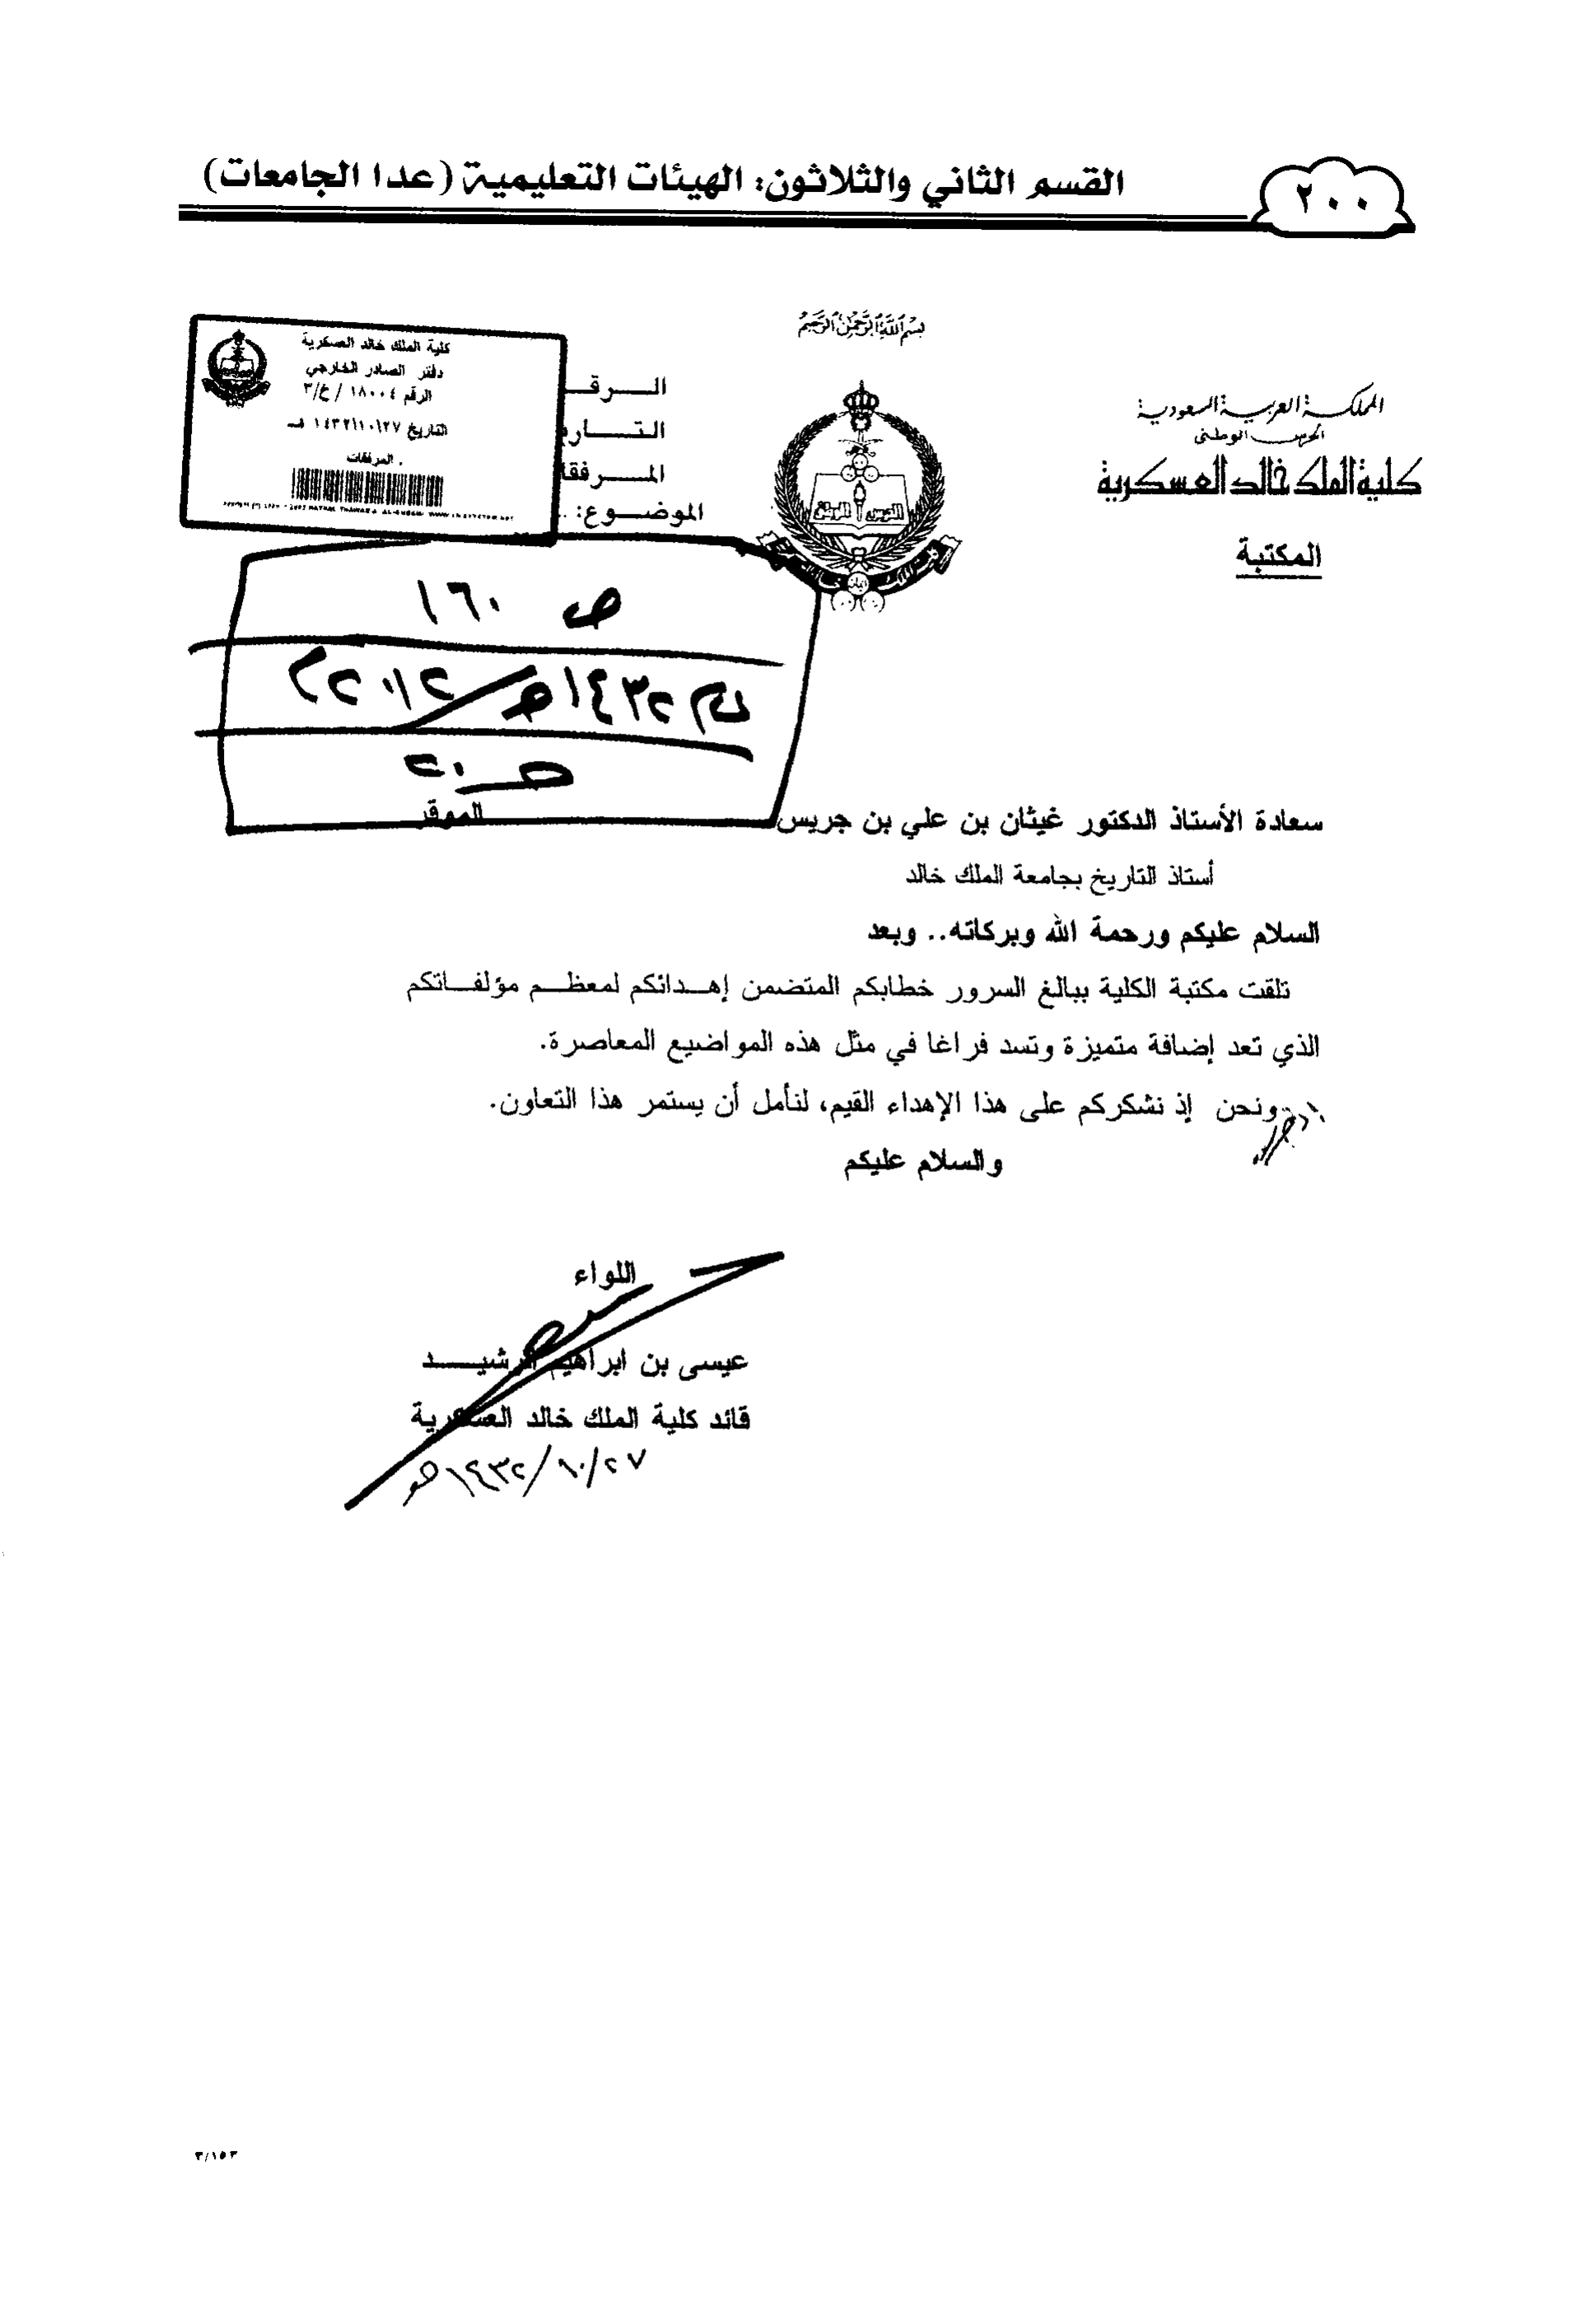 ٢٠٠
القسم الثاني والثلاثون: الهيئات التعليمية (عدا الجامعات)
بسم الله الرحمن الرحيم
المملكة العربية السعودية
الحرس الوطني
كلية الملك خالد العسكرية
المكتبة
الحرس الوطني
الـــــرقـ
التـــــاريـ
المـــــرفقا
الموضـــوع:
كلية الملك خالد العسكرية
دفتر الصادر الخارجي
الرقم ١٨٠٠٤ / خ/٣
التاريخ ١٤٣٢/١٠/٢٧ هـ
المرفقات
ص ١٦٠
١٤٣٢هـ/٢٠١١م
ص ٢٠
سعادة الأستاذ الدكتور غيثان بن علي بن جريس الموقر
أستاذ التاريخ بجامعة الملك خالد
السلام عليكم ورحمة الله وبركاته.. وبعد
تلقت مكتبة الكلية ببالغ السرور خطابكم المتضمن إهـــدائكم لمعظـــم مؤلفـــاتكم
الذي تعد إضافة متميزة وتسد فراغا في مثل هذه المواضيع المعاصرة.
ونحن إذ نشكركم على هذا الإهداء القيم، لنأمل أن يستمر هذا التعاون.
والسلام عليكم
اللواء
عيسى بن ابراهيم الرشيـــــد
قائد كلية الملك خالد العسكرية
٢٧/١٠/١٤٣٢هـ
٣/١٥٣